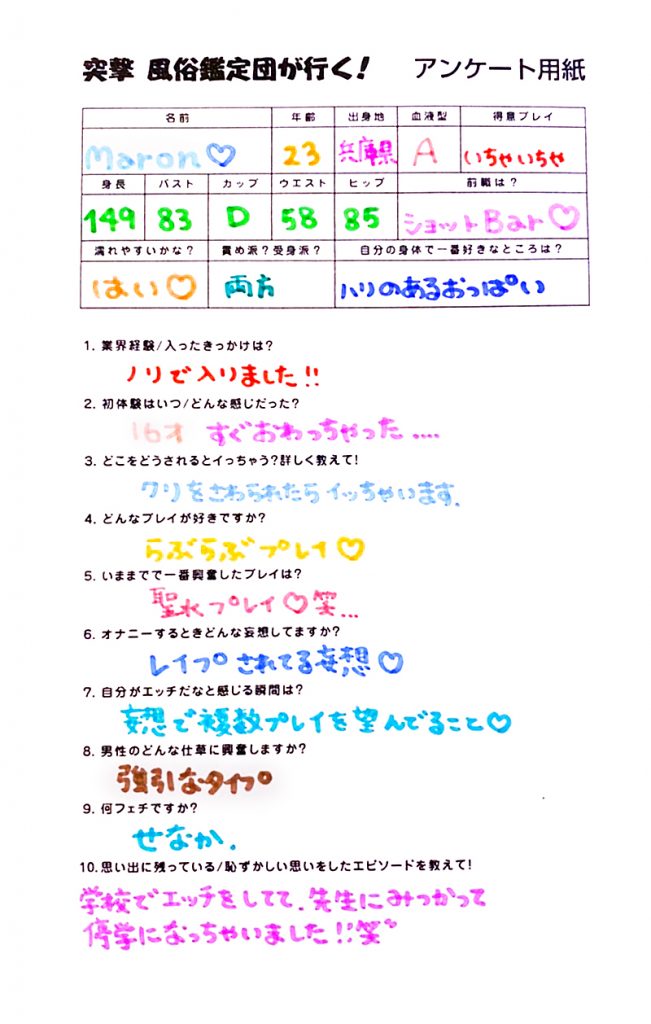 突撃 風俗鑑定団が行く! アンケート用紙
名前 年齢 出身地 血液型 得意プレイ
Maron♡ 23 兵庫県 A いちゃいちゃ
身長 バスト カップ ウエスト ヒップ 前職は?
149 83 D 58 85 ショットBar♡
濡れやすいかな? 責め派?受身派? 自分の身体で一番好きなところは?
はい♡ 両方 ハリのあるおっぱい
1. 業界経験/入ったきっかけは?
ノリで入りました!!
2. 初体験はいつ/どんな感じだった?
3. どこをどうされるとイっちゃう?詳しく教えて!
クリをさわられたらイッちゃいます.
4. どんなプレイが好きですか?
らぶらぶプレイ♡
5. いままでで一番興奮したプレイは?
聖水プレイ♡笑...
6. オナニーするときどんな妄想してますか?
レイプされてる妄想♡
7. 自分がエッチだなと感じる瞬間は?
妄想で複数プレイを望んでること♡
8. 男性のどんな仕草に興奮しますか?
強引なタイプ
9. 何フェチですか?
せなか.
10.思い出に残っている/恥ずかしい思いをしたエピソードを教えて!